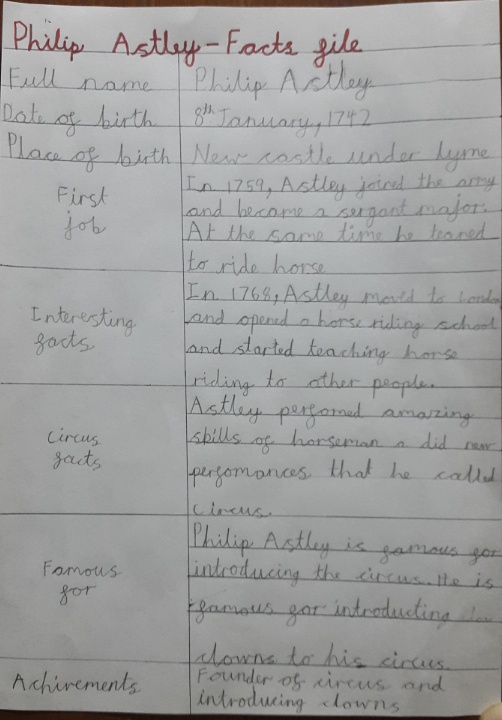 Philip Astley - Facts file
Full name Philip Astley
Date of birth 8th January, 1742
Place of birth New castle under lyme
First job
In 1759, Astley joined the army
and became a sergant major.
At the same time he leaned
to ride horse
Interesting facts
In 1768, Astley moved to London
and opened a horse riding school
and started teaching horse
riding to other people.
Circus facts
Astley perfomed amazing
skills of horseman a did new
perfomances that he called
circus.
Famous for
Philip Astley is famous for
introducing the circus. He is
famous for introducting
clowns to his circus.
Achirements
Founder of circus and
introducing clowns